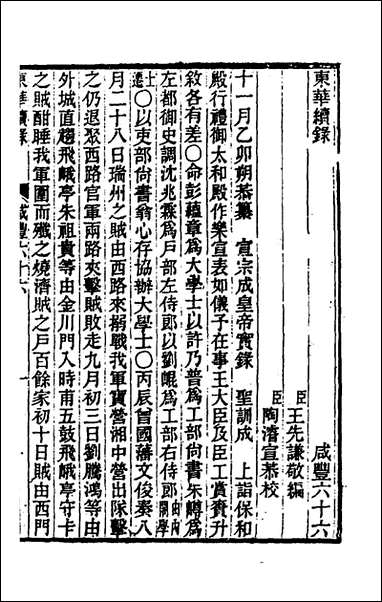 東華續錄　咸豐六十六
臣王先謙敬編
臣陶濬宣恭校
十一月乙卯朔恭纂　宣宗成皇帝實錄　聖訓成　上詣保和
殿行禮御太和殿作樂宣表如儀予在事王大臣及臣工賚賚升
敘各有差〇命彭蘊章爲大學士以許乃普爲工部尚書朱嶟爲
左都御史調沈兆霖爲戶部左侍郎以劉崐爲工部右侍郎由內閣學
士遷〇以吏部尚書翁心存協辦大學士〇丙辰曾國藩文俊奏八
月二十八日瑞州之賊由西路來搦戰我軍寶營湘中營出隊擊
之仍退聚西路官軍兩路夾擊賊敗走九月初三日劉騰鴻等由
外城直趨飛峨亭朱祖貴等由金川門入時甫五鼓飛峨亭守卡
之賊酣睡我軍圍而殲之燒濟賊之戶百餘家初十日賊由西門
東華續錄　咸豐六十六　一